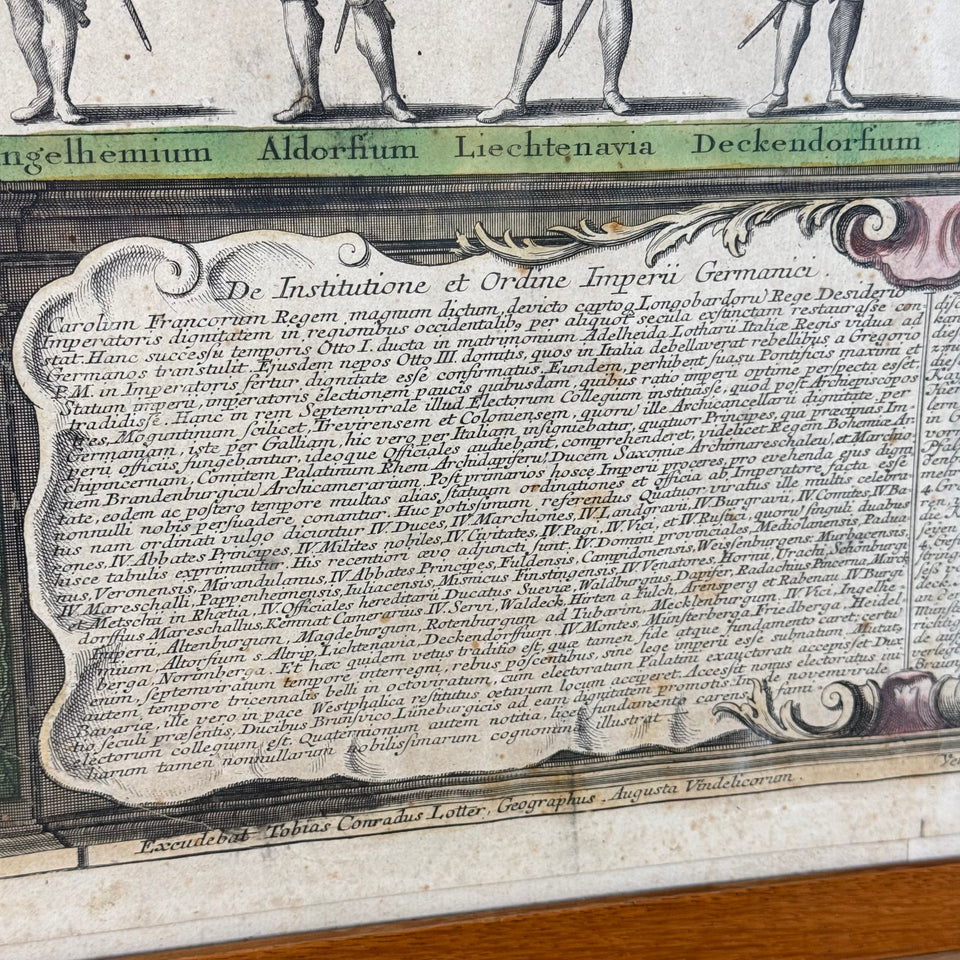 ngelhemium Aldorfium Liechtenavia Deckendorfium
De Institutione et Ordine Imperii Germanici
Carolum Francorum Regem magnum dictum, devicto captoq Longobardorū Rege Desiderio
Imperatoris dignitatem in regionibus occidentalibs per aliquot secula exstinctam restaurasse con
stat. Hanc successu temporis Otto I. ducta in matrimonium Adelheida Lotharii Italiæ Regis vidua ad
Germanos transtulit. Ejusdem nepos Otto III. domitis, quos in Italia debellaverat rebellibus a Gregorio
P.M. in Imperatoris fertur dignitate esse confirmatus. Eundem, perhibent suasu Pontificis maximi et
Statum imperii, imperatoris electionem paucis quibusdam, quibus ratio imperii optime perspecta esset
tradidisse. Hanc in rem Septemvirale illud Electorum Collegium instituisse, quod post Archiepiscopos
tres, Moguntinum scilicet, Trevirensem et Coloniensem, quorū ille Archicancellarii dignitate per
Germaniam, iste per Galliam, hic vero per Italiam insigniebatur, quatuor Principes, qui præcipuis Im-
perii officiis fungebantur, ideoque Officiales audiebant, comprehenderet, videlicet Regem Bohemiæ Ar
chipincernam, Comitem Palatinum Rheni Archidapiferū, Ducem Saxoniæ Archimareschaleū, et Marchio-
nem Brandenburgicū Archicamerarium. Post primarios hosce Imperii proceres, pro evehenda ejus digni
tate, eodem ac postero tempore multas alias statuum ordinationes et officia ab Imperatore facta esse
nonnulli nobis persuadere conantur. Huc potissimum referendus Quatuorviratus ille multis celebra-
tus nam ordinati vulgo dicuntur IV. Duces, IV. Marchiones, IV. Landgravii, IV. Burgravii, IV. Comites, IV. Ba-
rones, IV. Abbates Principes, IV. Milites nobiles, IV. Civitates, IV. Pagi, IV. Vici, et IV. Rustici, quorū singuli duabus
hisce tabulis exprimuntur. His recentiori ævo adjuncti sunt, IV. Domini provinciales Mediolanensis, Padua-
nus, Veronensis, Mirandulanus, IV. Abbates Principes, Fuldensis, Campidonensis, Weissenburgens: Murbacensis,
IV. Mareschalli, Pappenheimensis, Juliacensis, Misnicus Finstingensis, IV. Venatores, Hornii, Urachi, Schönburgi
et Metschii in Rhætia, IV. Officiales hereditarii Ducatus Sueviæ, Waldburgius Dapifer, Radachius Pincerna, Marck
dorffius Mareschallus, Kemnat Camerarius. IV. Servi, Waldeck, Hirten a Fulch, Arensperg et Rabenau. IV. Burgi
Imperii, Altenburgum, Magdeburgum, Rotenburgum ad Tubarim, Mecklenburgum. IV. Vici, Ingelhe
mium, Altorfium s. Altrip, Lichtenavia, Deckendorffium. IV. Montes, Münsterberga, Friedberga, Heidel
berga, Norimberga. Et hæc quidem vetus traditio est, quæ tamen fide atque fundamento caret: certū
enim, septemviratum tempore interregni, rebus poscentibus, sine lege imperii esse subnatum. Mutati
autem, tempore tricennalis belli in octoviratum, cum electoratum Palatini exauctorati accepisset Dux
Bavariæ, ille vero in pace Westphalica restitutus octavum locum acciperet. Accessit nonus electoratus ini
tio seculi præsentis, Ducibus Brunsvico Lüneburgicis ad eam dignitatem promotis. Inde novemvirale
electorum collegium est. Quaternionum autem notitia, licet fundamento carens, fami
liarum tamen nonnullarum nobilissimarum cognomina illustrat.
Excudebat Tobias Conradus Lotter, Geographus, Augusta Vindelicorum.